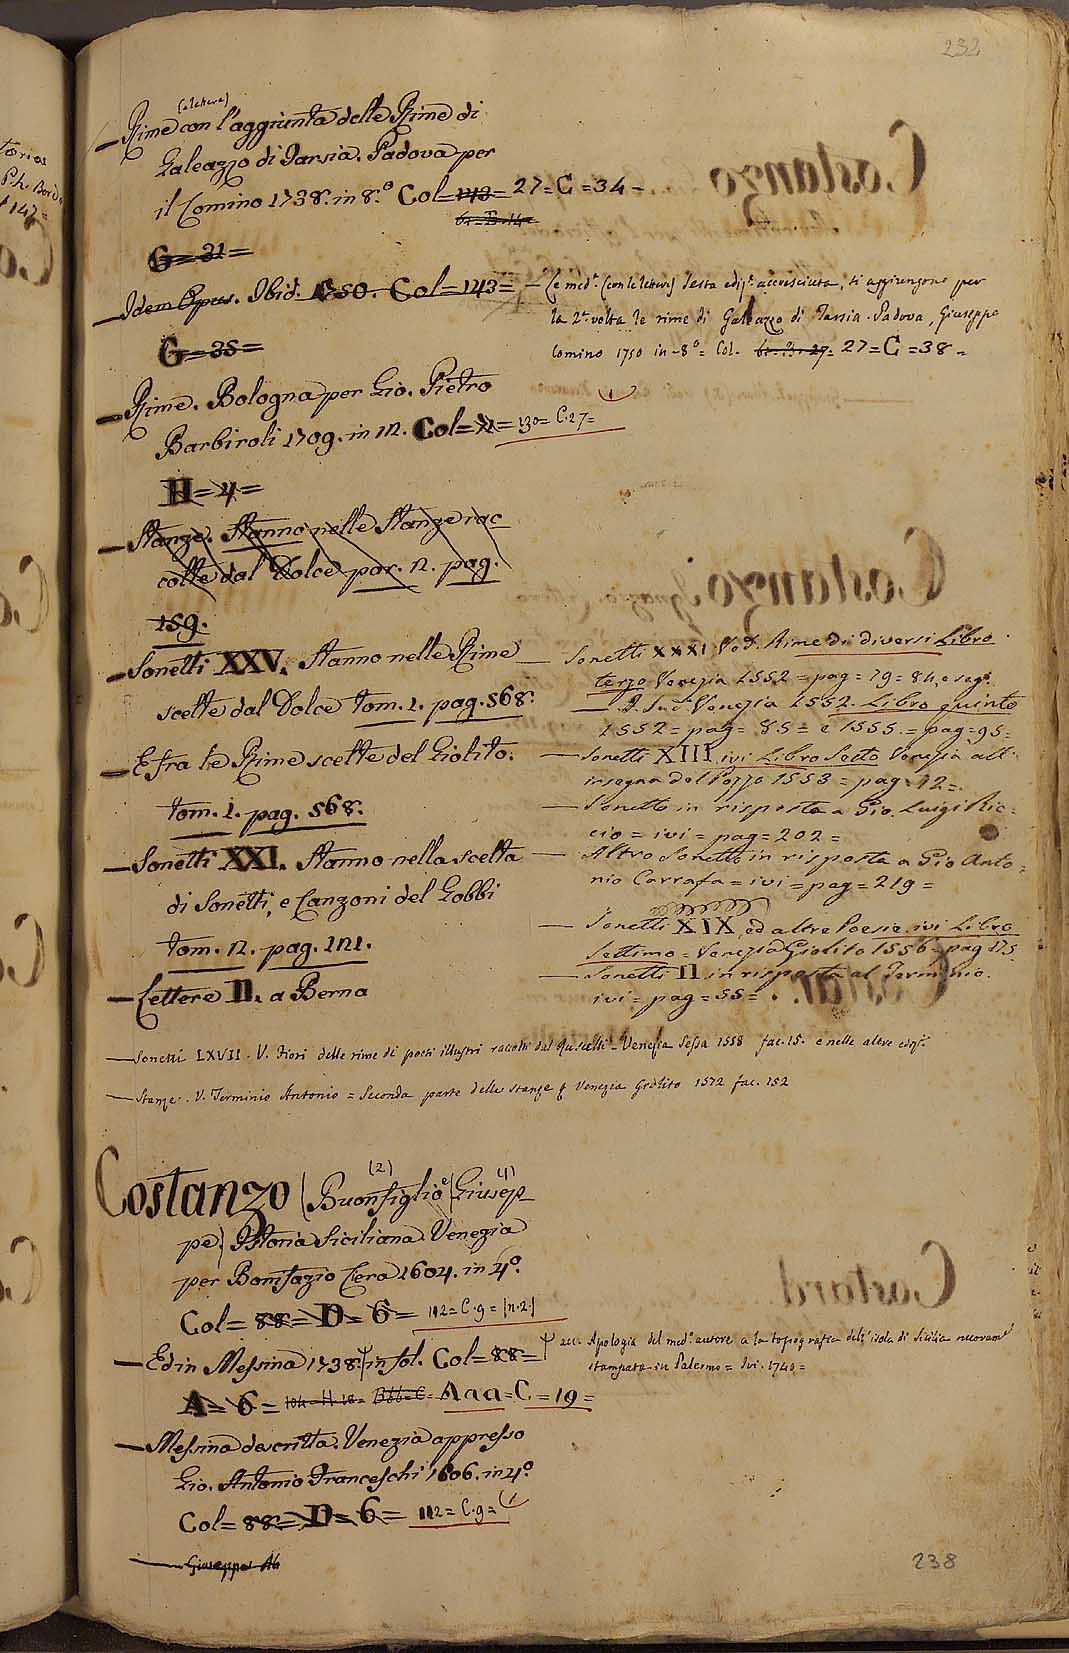 232
(e lettere)
— Rime con l'aggiunta delle Rime di
Galeazzo di Tarsia. Padova per
il Comino 1738. in 8.° Col= 143= 27= C =34 -
61= B. 14=
G= 31 =
— Idem Opus. Ibid. 1750. Col= 143=
G= 35 =
— Rime. Bologna per Gio. Pietro
Barbiroli 1709. in 12. Col= 71= 130= C. 27=
H= 4 =
— Stanze. Stanno nelle Stanze rac
colte dal Dolce par. 2. pag.
159.
— Sonetti XXV. Stanno nelle Rime
scelte dal Dolce tom. 1. pag. 568.
— E fra le Rime scelte del Giolito.
tom. 1. pag. 568.
— Sonetti XXI. Stanno nella scelta
di Sonetti, e Canzoni del Gobbi
tom. 2. pag. 121.
— Lettere II. a Berna
— Le med.e (con le lettere) Sesta ediz.e accresciuta, si aggiungono per
la 2.a volta le rime di Galeazzo di Tarsia. Padova, Giuseppe
Comino 1750 in-8° = Col. 61= B. 27= 27= C =38 =
— Sonetti XXXI Ved. Rime di diversi Libro
terzo Venezia 1552 = pag = 79 = 84, e seg.
— Venezia 1552. Libro quinto
1552 = pag = 85 = e 1555. = pag = 95 =
— Sonetti XIII ivi Libro Sesto Venezia all'
insegna del Pozzo 1553 = pag = 12 =
— Sonetto in risposta a Gio. Luigi Ric=
cio = ivi = pag = 202 =
— Altro Sonetto in risposta a Gio Anto=
nio Carrafa = ivi = pag = 219 =
— Sonetti XIX ed altre Poesie ivi Libro
Settimo = Venezia Giolito 1556 = pag 175
— Sonetti II in risposta al Terminio.
ivi = pag = 55 =
— Sonetti LXVII. V. Fiori delle rime di poeti illustri raccolti dal Ruscelli = Venezia Sessa 1558 fac. 15. e nelle altre ediz.
— Stanze. V. Terminio Antonio = Seconda parte delle stanze Venezia Giolito 1572 fac. 152
(2) (1)
Costanzo (Buonfiglio e Giusep
pe) Istoria Siciliana. Venezia
per Bonifazio Ciera 1604. in 4.°
Col= 88= D= 6= 112= C. 9= [n. 2.]
— Ed in Messina 1738. in fol. Col= 88=
acc. Apologia del med.o autore a la topografia dell'isola di Sicilia nuovam.e
stampata in Palermo = Ivi. 1740 =
A= 6= 104= H. 18= Bbb= C= Aaa= C =19=
— Messina descritta. Venezia appresso
Gio. Antonio Franceschi 1606. in 4.°
Col= 88= D= 6= 112= C. 9=
— Giuseppe
238